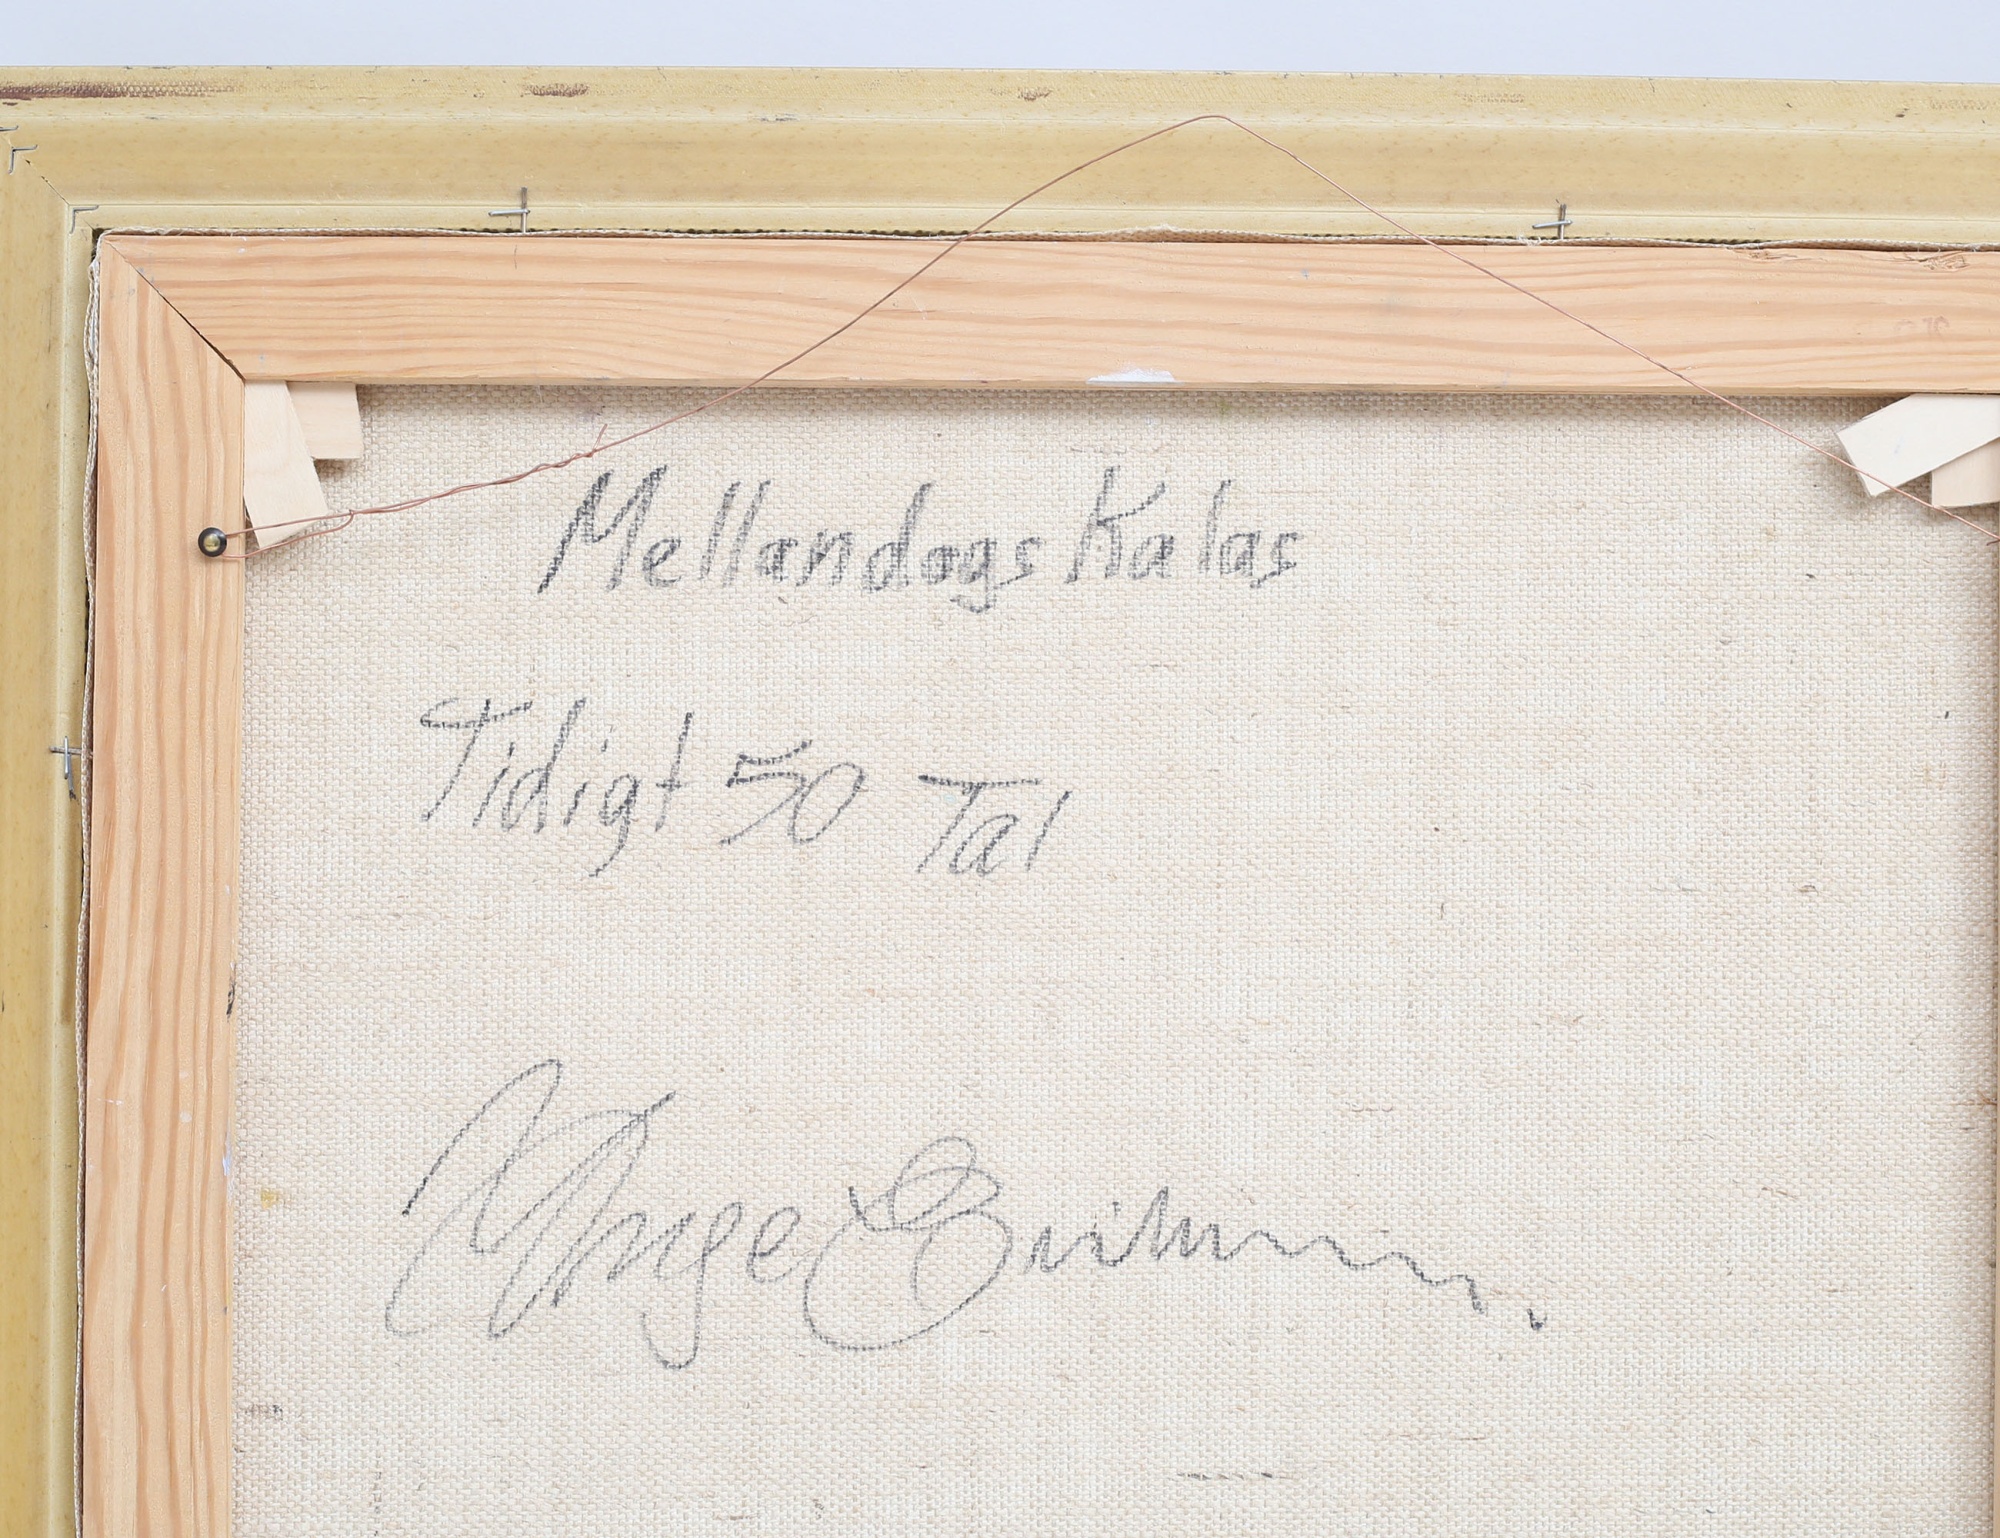 Mellandags Kalas
Tidigt 50 Tal
Inge